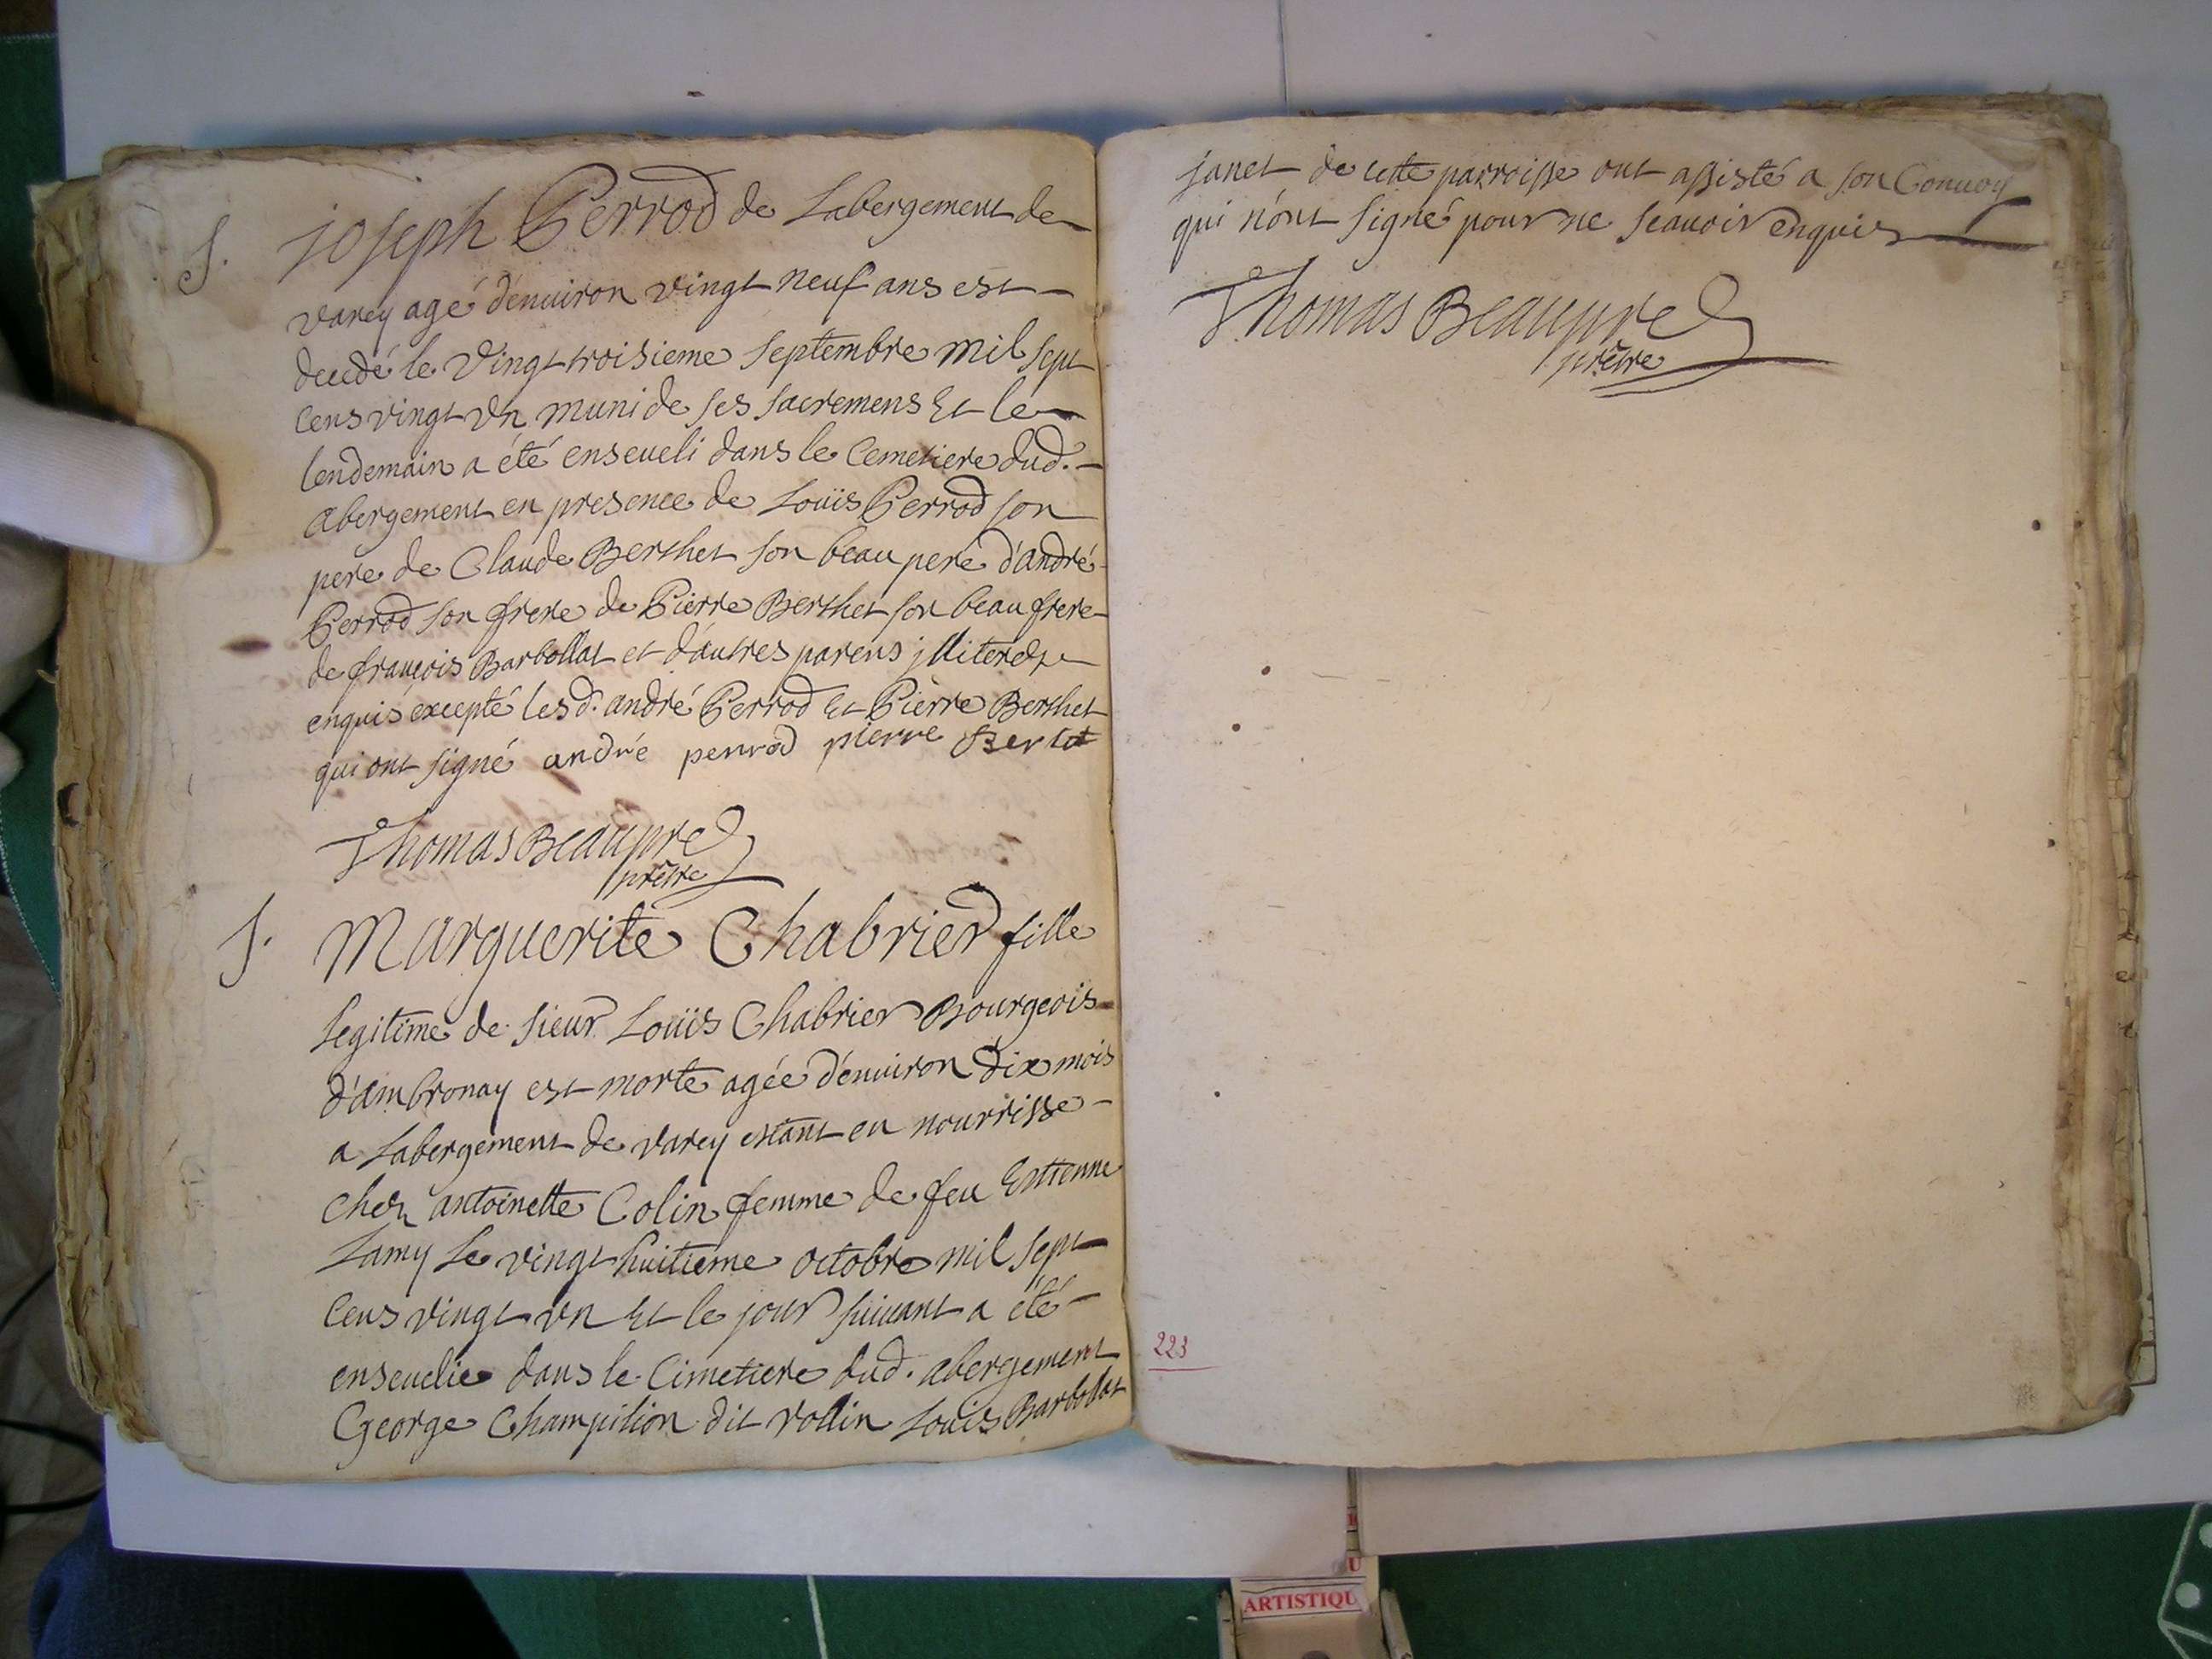 S. joseph Perrod de Labergement de
varey agé d'enuiron vingt neuf ans est
decedé le vingt troisieme septembre mil sept
cens vingt vn muni de ses sacremens Et le
lendemain a été enseueli dans le cemetiere dud.
abergement en presence de Loüis Perrod son
pere de Claude Berthet son beau pere d'andré
Perrod son frere de Pierre Berthet son beau frere
de françois Barbollat et d'autres parens jlliterez
enquis excepté lesd. andré Perrod Et Pierre Berthet
qui ont signé andré perrod pierre Bertet
Thomas Beaupre
prêtre
S. Marguerite Chabrier fille
legitime de sieur Loüis Chabrier Bourgeois
d'ambronay est morte agée d'enuiron dix mois
a Labergement de varey estant en nourrisse
chez antoinette Colin femme de feu Estienne
Lamy Le vingt huitieme octobre mil sept
cens vingt vn Et le jour suiuant a été
enseuelie dans le Cimetiere dud. abergement
George Champition dit rollin Louis Barbollat
janet de cette parroisse ont assisté a son Conuoy
qui n'ont signé pour ne scauoir enquis
Thomas Beaupre
prêtre
223
U
ARTISTIQU